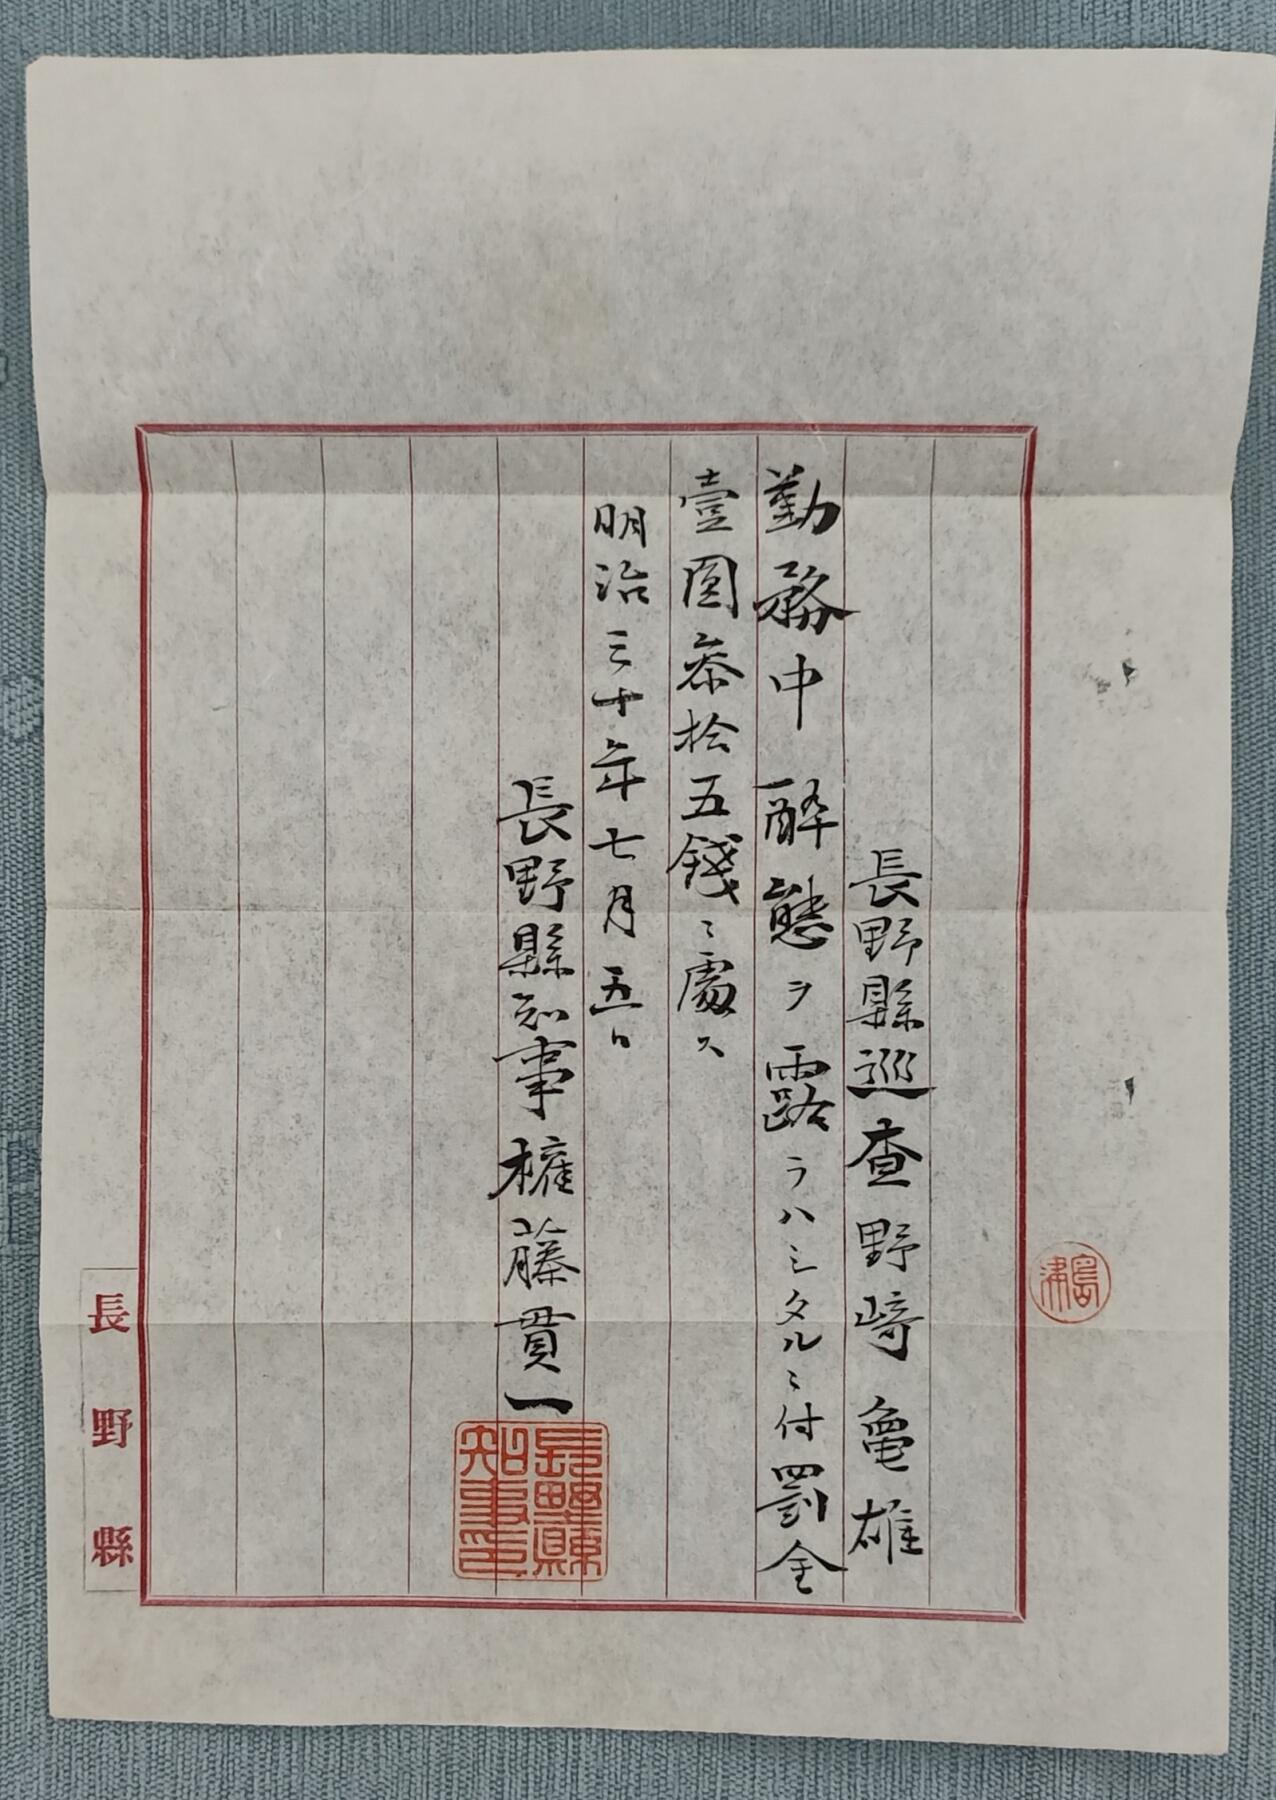 長野縣巡査野﨑亀雄
勤務中酔態ヲ露ラハシタルニ付罰金
壹圓叅拾五錢ニ處ス
明治三十年七月五日
長野縣知事権藤貫一
長野縣知事印
長野縣